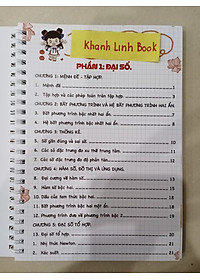 Khanh Linh Book
PHẦN 1: ĐẠI SỐ.
CHƯƠNG 1: MỆNH ĐỀ - TẬP HỢP.
1. Mệnh đề 1
2. Tập hợp và các phép toán trên tập hợp. 3
CHƯƠNG 2: BẤT PHƯƠNG TRÌNH VÀ HỆ BẤT PHƯƠNG TRÌNH HAI ẨN.
3. Bất phương trình bậc nhất hai ẩn.
4. Hệ bất phương trình bậc nhất hai ẩn.
CHƯƠNG 3: THỐNG KÊ.
5. Số gần đúng và sai số.
6. Các số đặc trưng đo xu thế trung tâm.
7. Các số đặc trưng đo độ phân tán.
CHƯƠNG 4: HÀM SỐ, ĐỒ THỊ VÀ ỨNG DỤNG.
8. Đại cương về hàm số. 11
9. Hàm số bậc hai. 13
10. Dấu của tam thức bậc hai. 15
11. Bất phương trình bậc nhất một ẩn 17
12. Phương trình đưa về phương trình bậc 2 19
CHƯƠNG 5: ĐẠI SỐ TỔ HỢP.
1. Đại số tổ hợp 21
2. Nhị thức Newton 21
3. Xác suất